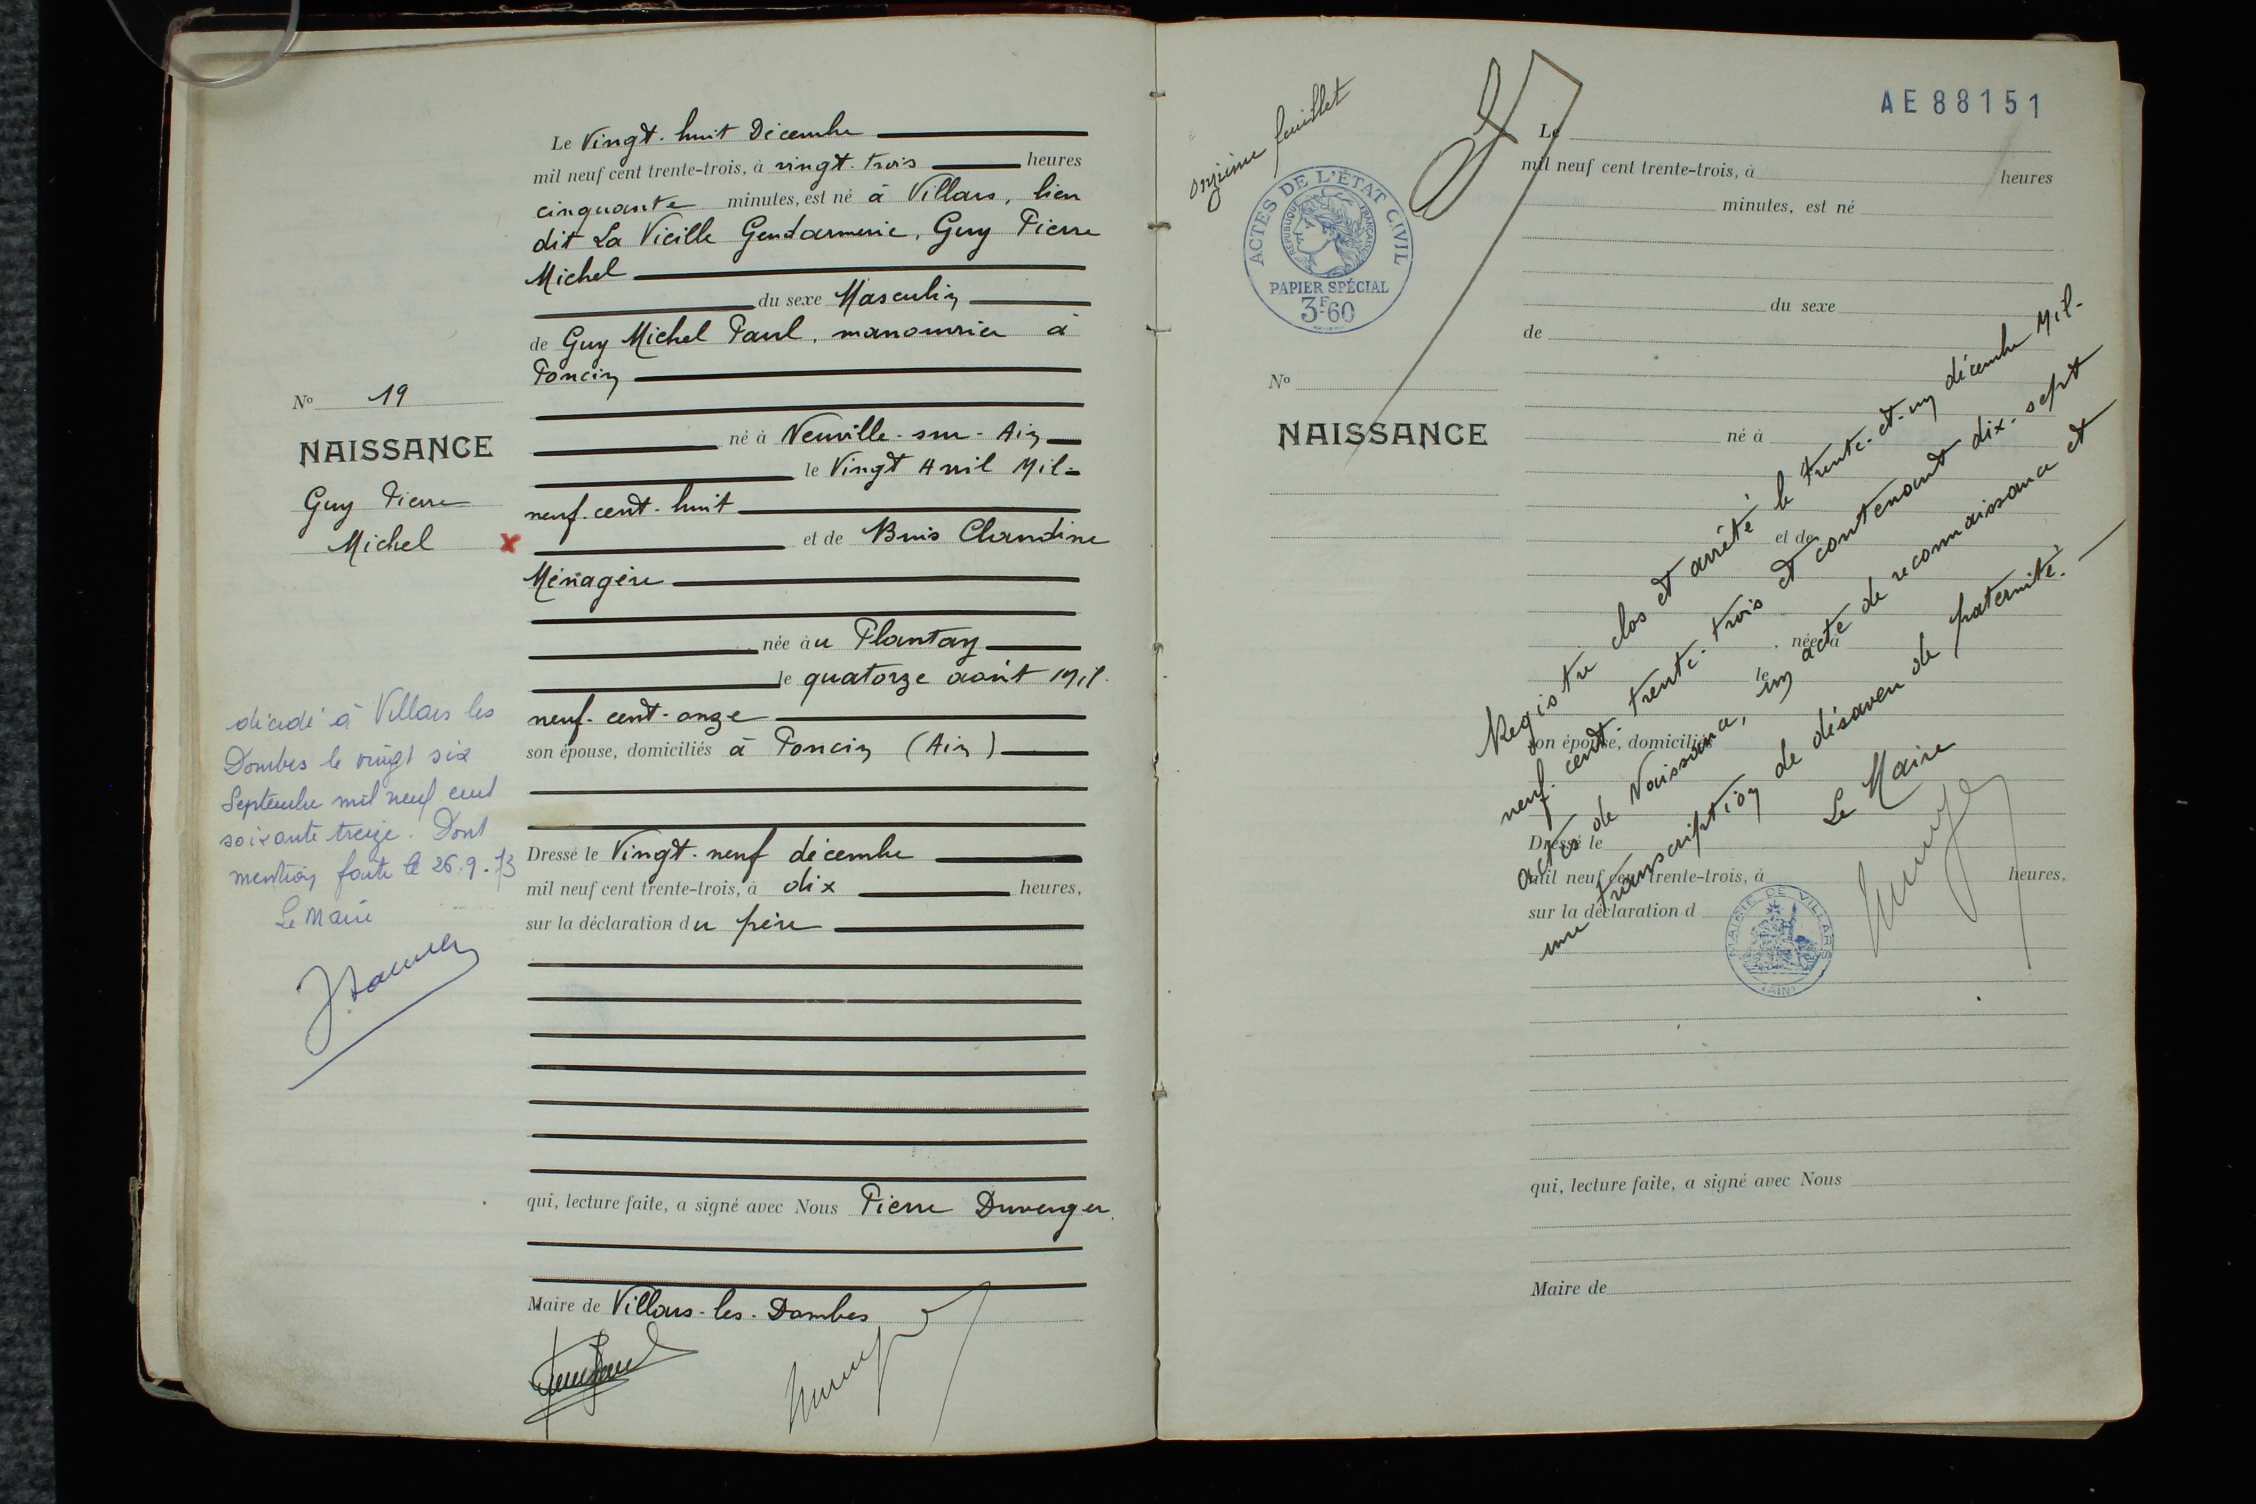 Le Vingt-huit Décembre
mil neuf cent trente-trois, à vingt-trois heures
cinquante minutes, est né à Villars, lieu
dit La Vieille Gendarmerie, Guy Pierre
Michel
du sexe Masculin
de Guy Michel Paul, manouvrier à
Poncin
né à Neuville-sur-Ain
le Vingt Avril Mil-
neuf-cent-huit
et de Buis Claudine
Ménagère
née àu Plantay
le quatorze août Mil-
neuf-cent-onze
son épouse, domiciliés à Poncin (Ain)
Dressé le Vingt-neuf décembre
mil neuf cent trente-trois, à dix heures,
sur la déclaration du père
qui, lecture faite, a signé avec Nous Pierre Duverger,
Maire de Villars-les-Dombes
No 19
NAISSANCE
Guy Pierre
Michel
décédé à Villars les
Dombes le vingt six
Septembre mil neuf cent
soixante treize. Dont
mention faite le 26.9.73
Le Maire
onzième feuillet
AE 88151
ACTES DE L'ÉTAT CIVIL
RÉPUBLIQUE FRANÇAISE
PAPIER SPÉCIAL
3F60
No
NAISSANCE
Le
mil neuf cent trente-trois, à heures
minutes, est né
du sexe
de
né à
le
et de
née à
le
son épouse, domiciliés
Dressé le
mil neuf cent trente-trois, à heures,
sur la déclaration d
qui, lecture faite, a signé avec Nous
Maire de
Registre clos et arrêté le trente-et-un décembre Mil-
neuf-cent-trente-trois et contenant dix-sept
actes de Naissance, un acte de reconnaissance et
une transcription de désaveu de paternité.
Le Maire
MAIRIE DE VILLARS
(AIN)